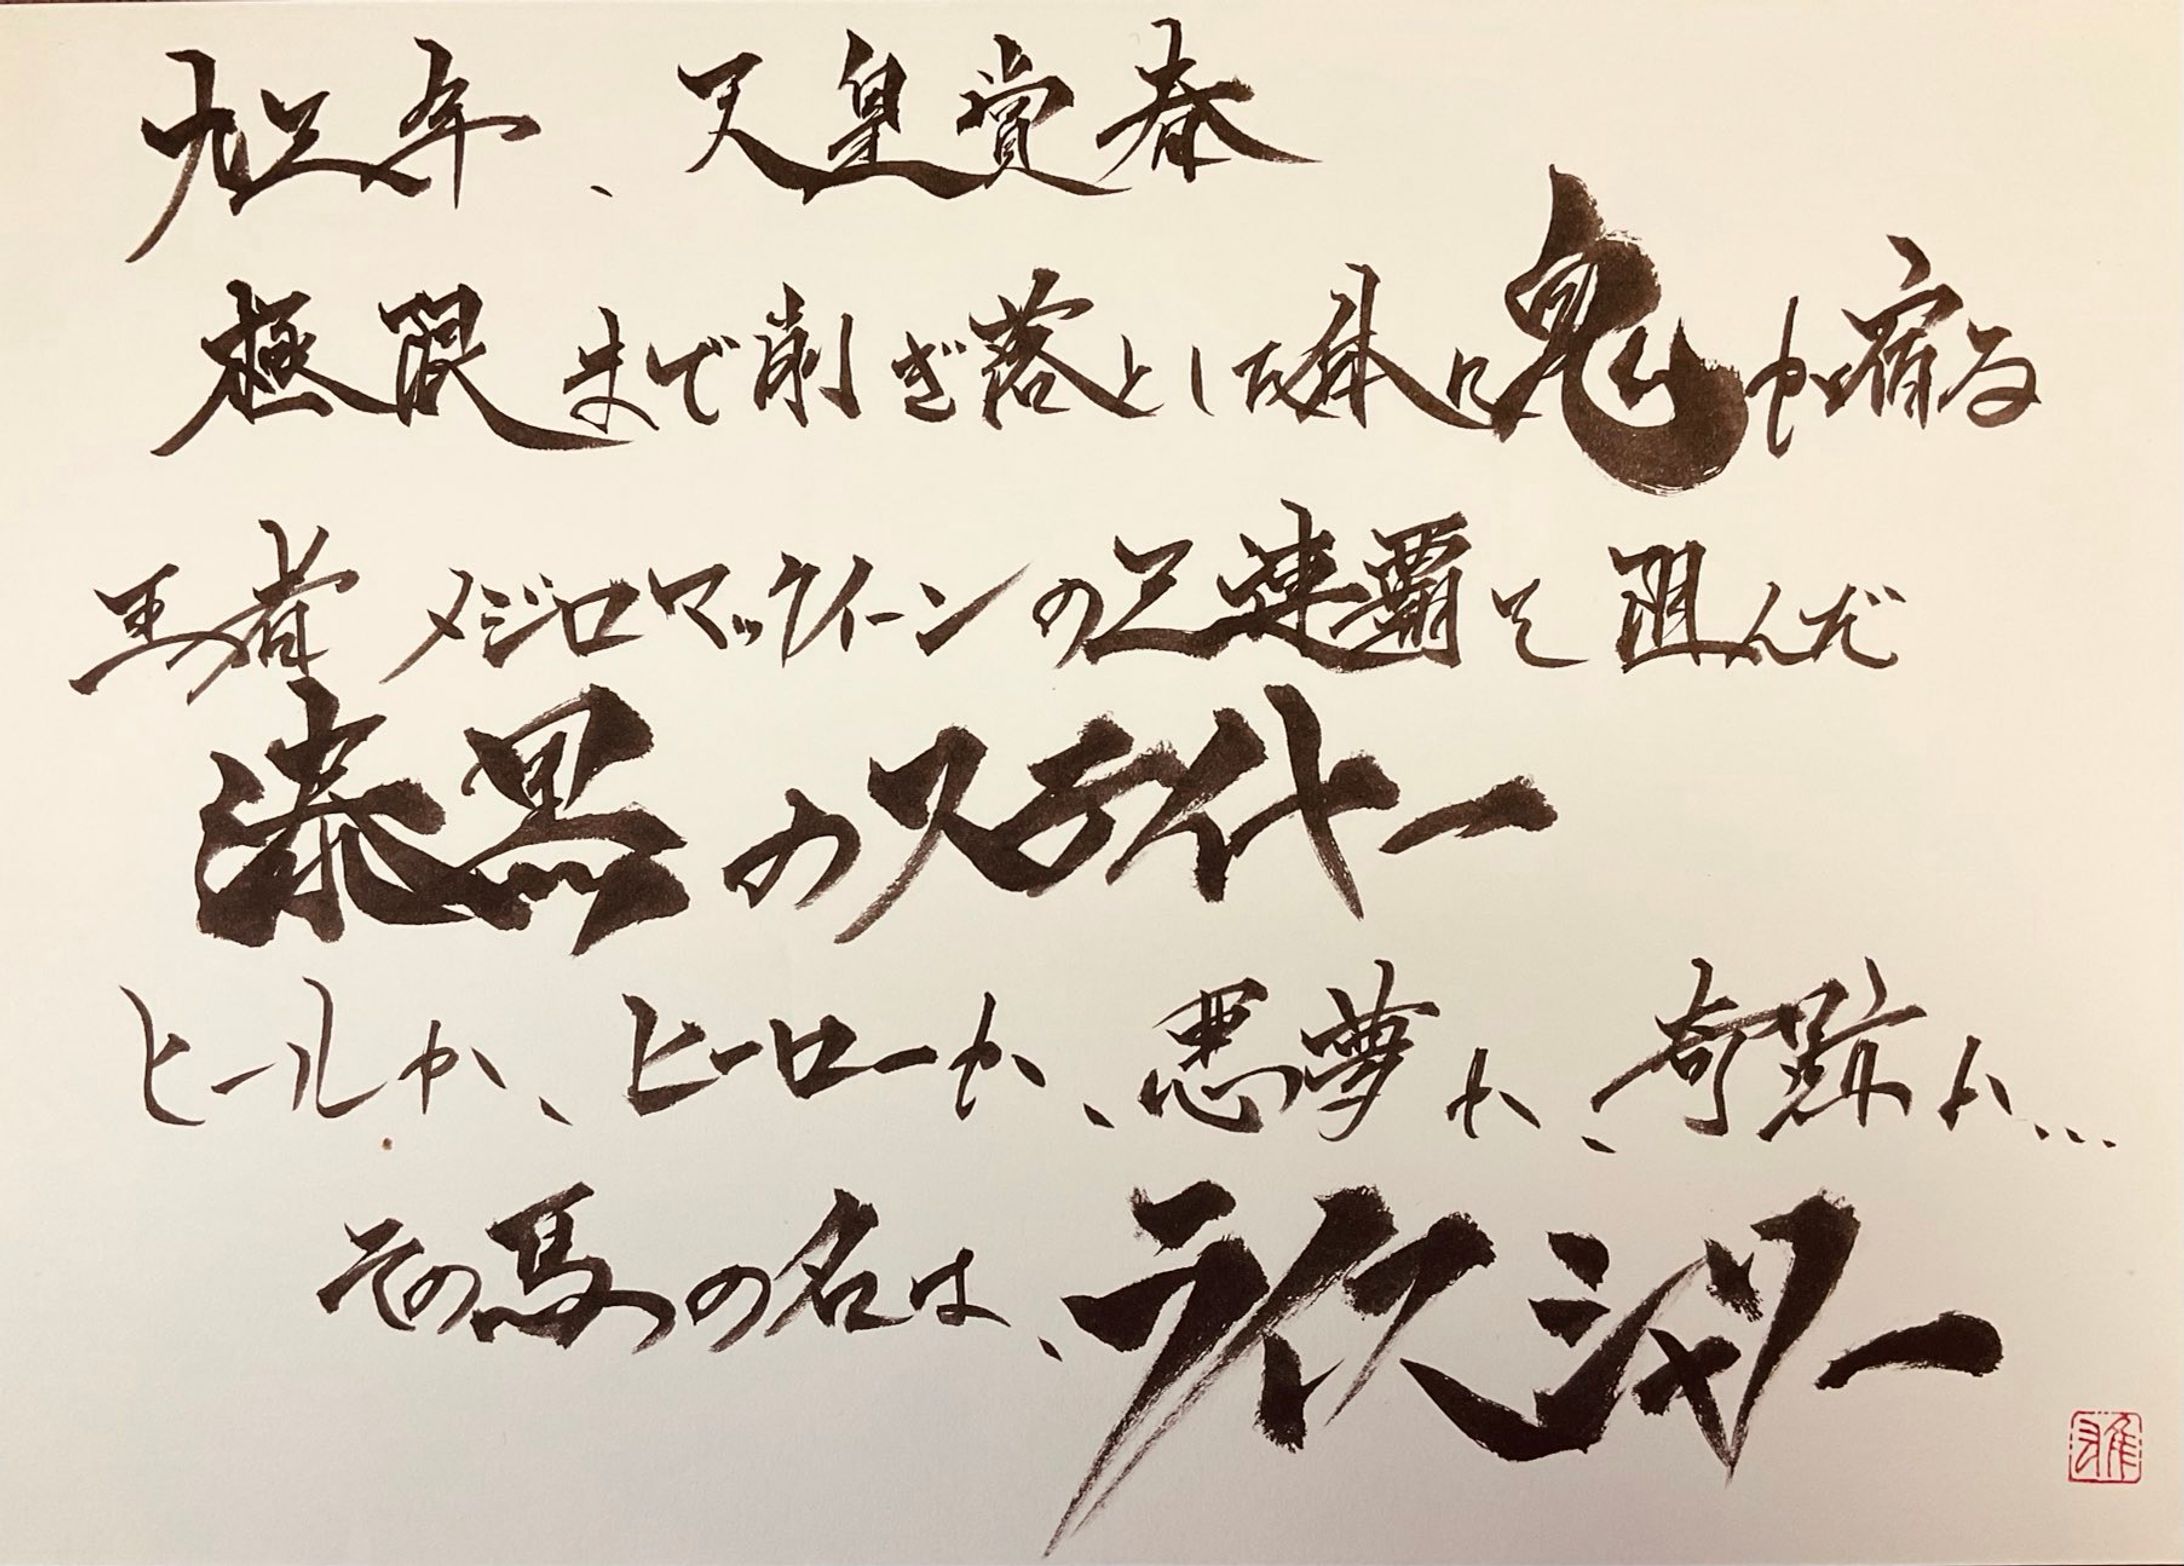 九三年、天皇賞春
極限まで削ぎ落とした体に鬼が宿る
王者 メジロマックイーンの三連覇を阻んだ
漆黒のステイヤー
ヒールか、ヒーローか、悪夢か、奇跡か...
その馬の名は、ライスシャワー
雅